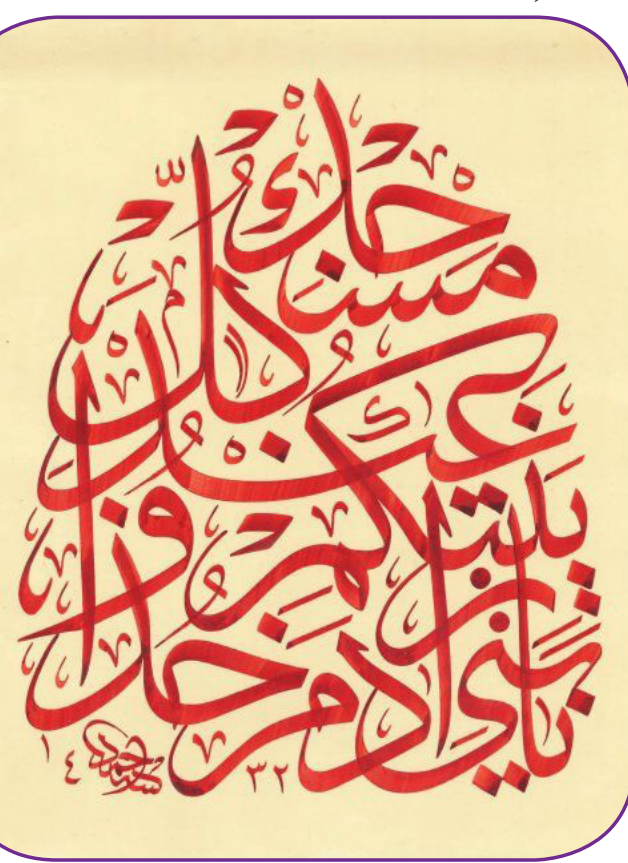 يَا بَنِي آدَمَ خُذُوا
زِينَتَكُمْ
عِنْدَ كُلِّ
مَسْجِدٍ
١٤٣٢